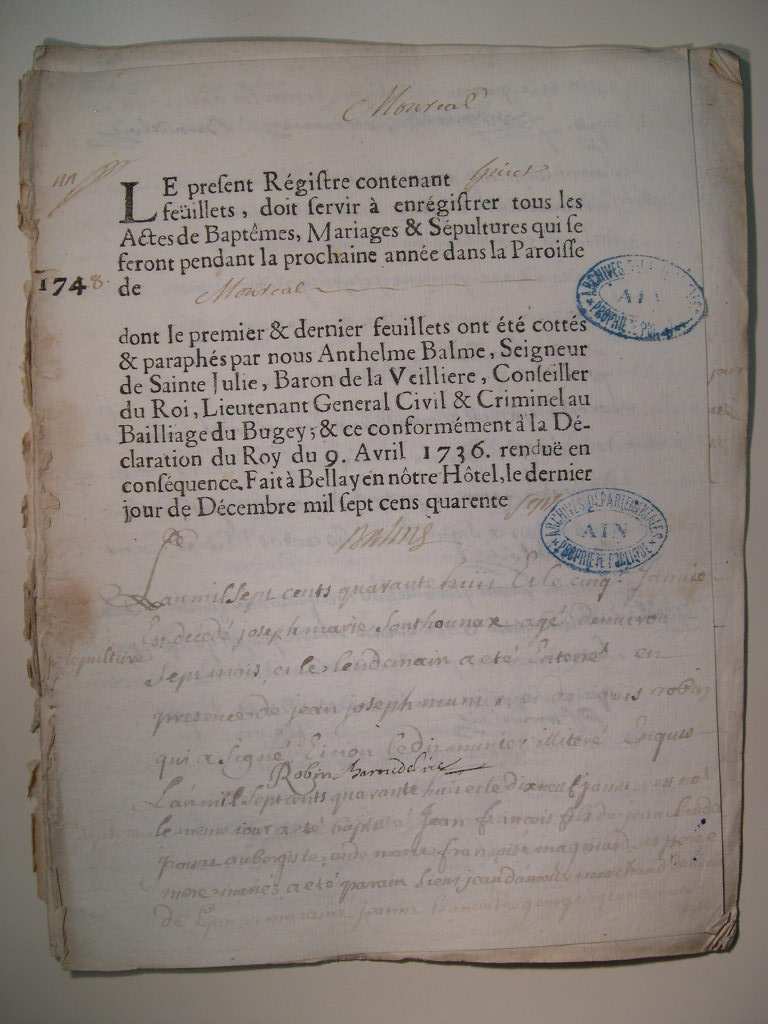 Montreal
LE preſent Régiſtre contenant huict
feüillets, doit ſervir à enrégiſtrer tous les
Actes de Baptêmes, Mariages & Sépultures qui ſe
feront pendant la prochaine année dans la Paroiſſe
1748. de Montreal
dont le premier & dernier feuillets ont été cottés
& paraphés par nous Anthelme Balme, Seigneur
de Sainte Julie, Baron de la Veilliere, Conſeiller
du Roi, Lieutenant General Civil & Criminel au
Bailliage du Bugey; & ce conformément à la Dé-
claration du Roy du 9. Avril 1736. renduë en
conſéquence. Fait à Bellay en nôtre Hôtel, le dernier
jour de Décembre mil ſept cens quarente ſept
ARCHIVES AIN PROPRIETE
ARCHIVES DEPARTEMENTALES AIN PROPRIETE PUBLIQUE
Balme
L'an mil sept cents quarante huit et le cinq janvier
Est décédé joseph marie Sonthounax agé denviron
sepulture
sept mois et le lendemain a eté Enterré en
presence de jean joseph et robin
qui a Signé illiteré Enquis
Robin
L'an mil sept cents quarante huit et le dixneuf janvier est né
le meme jour a eté baptisé Jean francois fils de jean
aubergiste francoise
mere mariés a eté parain sieur jean marchand
de jeanne